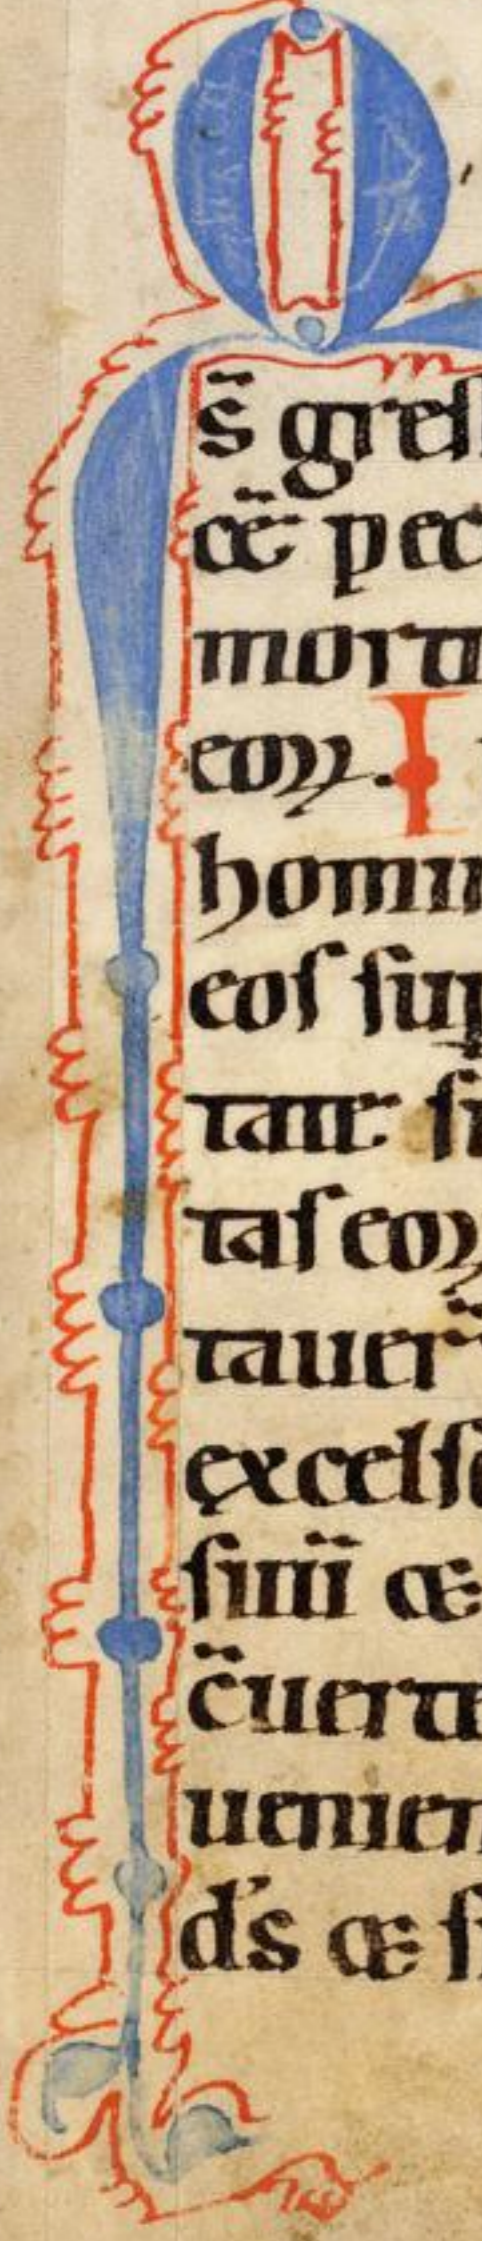 Q
s̄ greſ
cē pec
morti
eoꝝ. I
homin
eoſ ſup
tate ſi
taſ eoꝝ
tauer̄
excelſo
ſimī
c̄uerte
uenien
d's